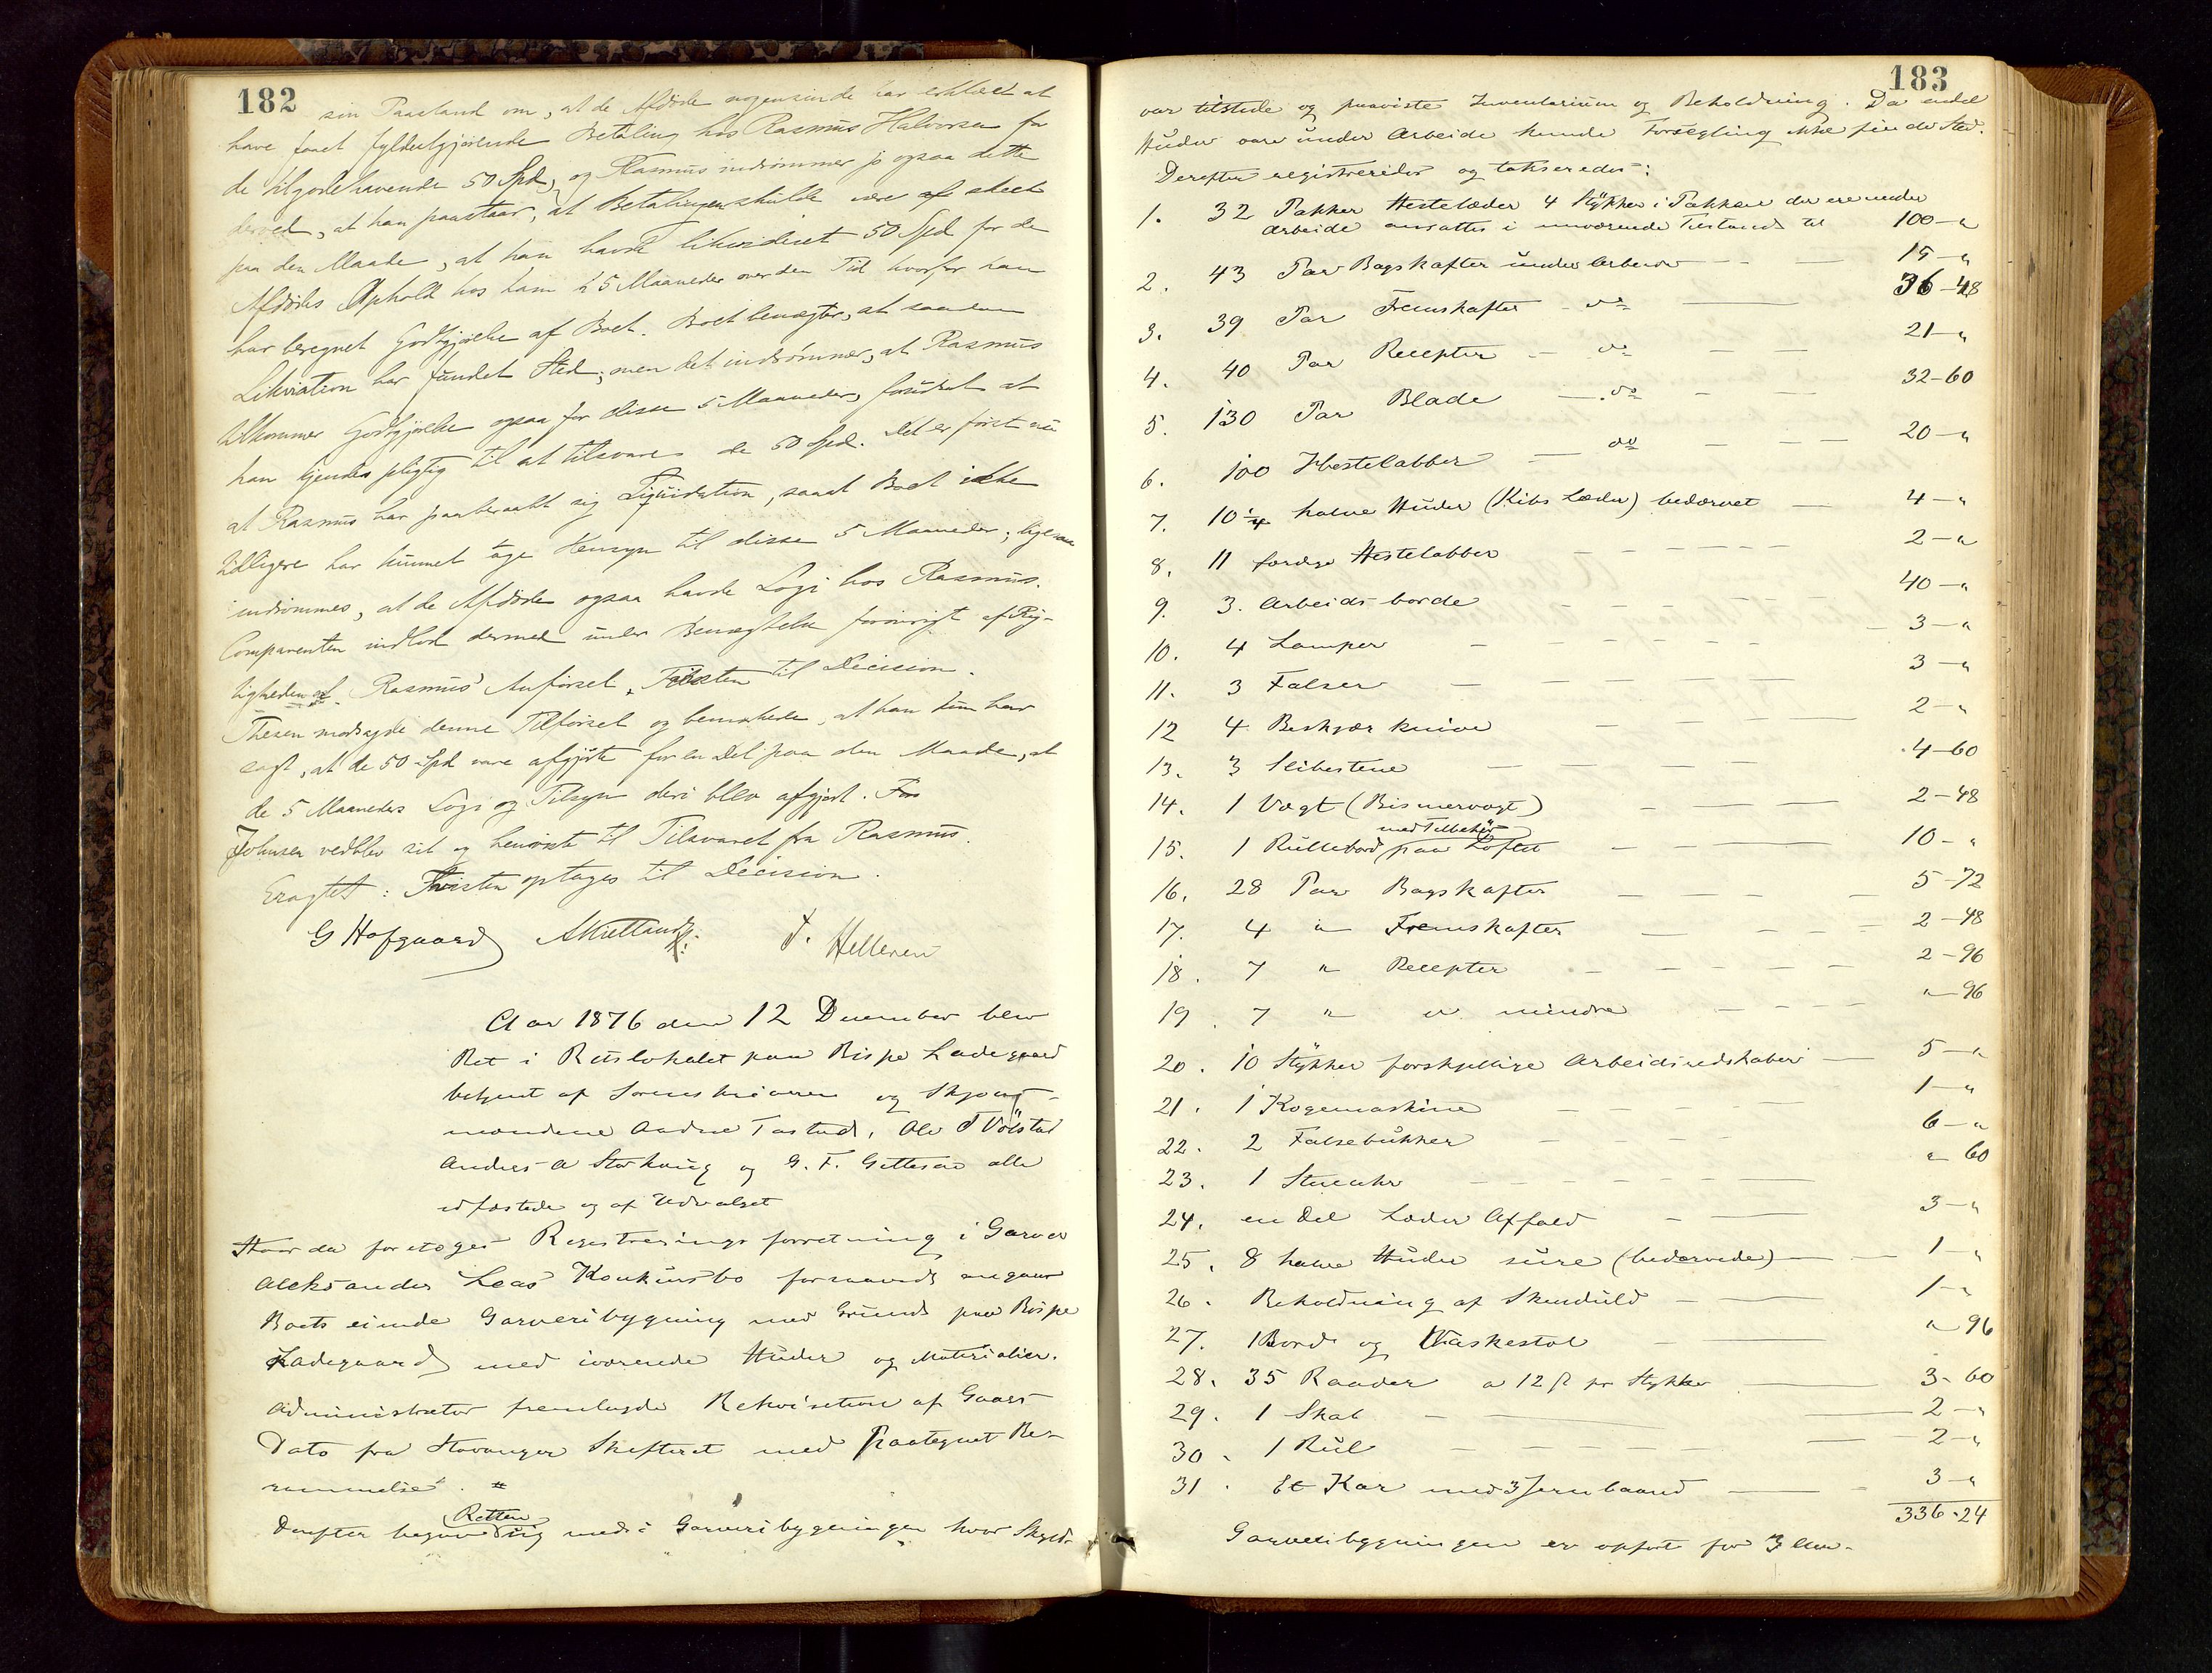 182
sin Paastand om, at de Afdøde nogensinde har erklæret at
have faaet fyldestgjørende Betaling hos Rasmus Halvorsen for
de tilgodehavende 50 Spd, og Rasmus indrømmer jo ogsaa dette
derved, at han paastaar, at Betalingen skulde være af skeet
paa den Maade, at han havde likvideret 50 Spd for de
Afdødes Ophold hos ham i 5 Maaneder over den Tid hvorfor han
har beregnet Godtgjørelse af Boet. Boet benægter, at saadan
Likvidation har fundet Sted, men det indrømmer, at Rasmus
tilkommer Godtgjørelse ogsaa for disse 5 Maaneder, forudsat at
han kjendes pligtig til at tilsvare de 50 Spd. Det er først nu
at Rasmus har paaberaabt sig Liquidation, saaat Boet ikke
tidligere har kunnet tage Hensyn til disse 5 Maaneder; ligesom
indrømmes, at de Afdøde ogsaa havde Logi hos Rasmus.
Comparenten indlod dermed under Benægtelse forøvrigt af Rig-
tigheden af Rasmus' Anførsel, Tvisten til Decision.
Thesen modsagde denne Tilførsel og bemærkede, at han kun har
sagt, at de 50 Spd vare afgjorte for en Del paa den Maade, at
de 5 Maaneders Logi og Tilsyn deri blev afgjort. For
Johnsen vedblev sit og henviste til Tilsvaret fra Rasmus.
Eragtet: Tvisten optages til Decision.
G Hofgaard T. Helleren
Aar 1876 den 12 December blev
Ret i Retslokalet paa Bispe Ladegaard
betjent af Sorenskriveren og Skjøns-
mændene Andre Tastad, Ole T Volstad
Andreas A Stokavig og G. F. Gittesen alle
edfæstede og af Udvalget
Hvor da foretoges Registrerings forretning i Garver
Aleksander Leas Konkursbo forsaavidt angaar
Boets eiende Garveribygning med Grund paa Bispe
Ladegaard med iværende Huder og Materialier.
Administrator fremlagde Rekvisition af Gaars
Dato fra Stavanger Skifteret med Paategnet Be-
rammelse. #
Retten
Derefter begav sig ned i Garveribygningen hvor Skyld-
183
var tilstede og paaviste Inventarium og Beholdning. Da endel
Huder vare under Arbeide kunde Forsegling ikke finde Sted.
Derefter registreredes og takseredes:
1. 32 Pakker Hestelæder 4 Stykker i Pakken der ere under
Arbeide ansattes i nuværende Tilstand til 100 — "
2. 43 Par Bagskafter under Arbeide — — 15 — "
3. 39 Par Fremskafter - do — 36 - 48
4. 40 Par Recepter — do — — 21 — "
5. 130 Par Blade — do — — 32 - 60
6. 100 Hestelabber — do — — — 20 — "
7. 10 1/4 halve Huder (Kibs Læder) bedærvet — 4 — "
8. 11 færdige Hestelabber — — — — 2 — "
9. 3. Arbeids borde — — — — 40 — "
10. 4 Lamper — — — — 3 — "
11. 3 Falser — — — — 3 — "
12 4 Beskjær knive — — — 2 — "
13. 3 Slibestene — — — — 4 - 60
14. 1 Vægt (Bismervægt) — — 2 - 48
med Tilbehør
15. 1 Rullebord paa Loftet — — — 10 - "
16. 28 Par Bagskafter — — — 5 - 72
17. 4 " Fremskafter — — — 2 - 48
18. 7 " Recepter — — — — 2 - 96
19. 7 " " mindre — — — " - 96
20. 10 Stykker forskjellige Arbeidsredskaber — 5 — "
21. 1 Kogemaskine — — — — 1 — "
22. 2 Falsebukker — — — — 6 — "
" 60
23. 1 Stueuhr — — — —
24. en Del Læder Affald — — 3 — "
25. 8 halve Huder sure (bedærvede) — — 1 "
26. Beholdning af Skinduld — — 1 - "
27. 1 Bord og Vaskestol — — " 96
28. 35 Raader a 12 ß pr Stykke — 3 - 60
29. 1 Skab — — — 2 — "
30. 1 Rul — — — — 2 - "
31. Et Kar med 3 Jernbaand — — 3 — "
336 - 24
Garveribygningen er opført for 3 Aar-